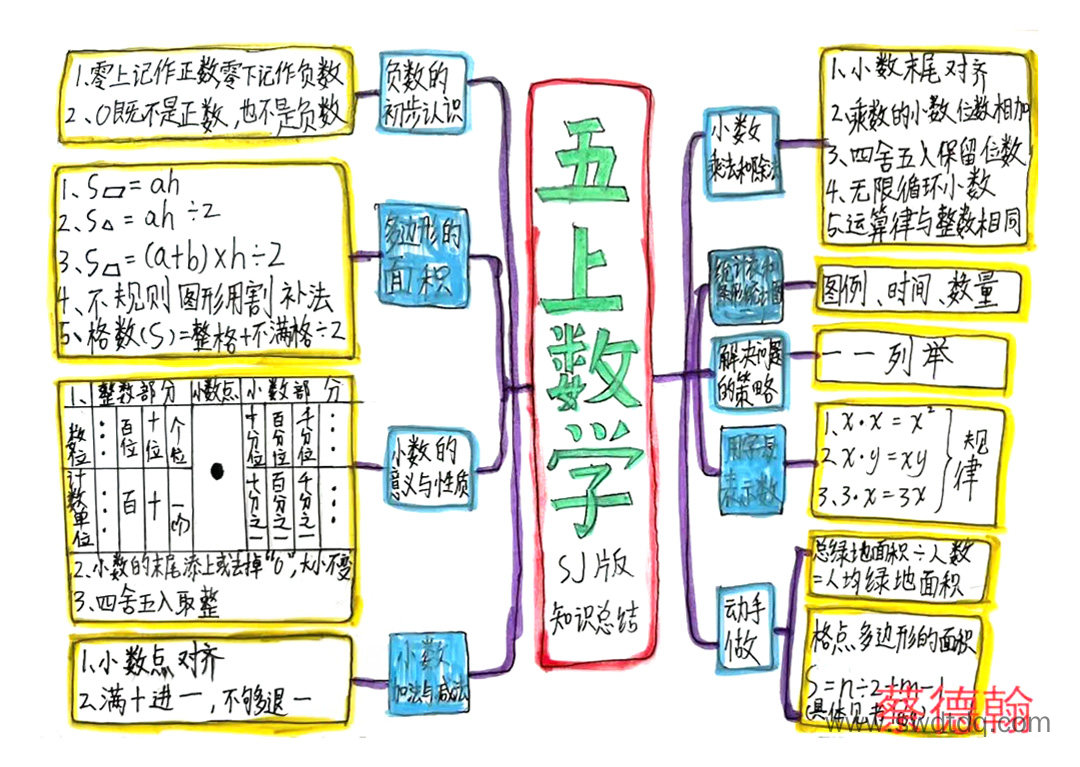 五上数学
SJ版
知识总结
负数的
初步认识
1.零上记作正数,零下记作负数
2、0既不是正数,也不是负数
多边形的
面积
1、S▱=ah
2.S△=ah÷2
3、S=(a+b)×h÷2
4、不规则图形用割补法
5、格数(S)=整格+不满格÷2
小数的
意义与性质
1、整数部分 小数点 小数部分
数位 … 百位 十位 个位 十分位 百分位 千分位 …
计数单位 … 百 十 一(个) 十分之一 百分之一 千分之一 …
2.小数的末尾添上或去掉“0”,大小不变
3.四舍五入取整
小数
加法与减法
1.小数点对齐
2.满十进一,不够退一
小数
乘法和除法
1.小数末尾对齐
2.乘数的小数位数相加
3、四舍五入保留位数
4.无限循环小数
5.运算律与整数相同
统计表和
条形统计图
图例、时间、数量
解决问题
的策略
一一列举
用字母
表示数
1.x·x=x²
2.x·y=xy
3.3·x=3x
规律
动手
做
总绿地面积÷人数
=人均绿地面积
格点多边形的面积
S=n÷2+m-1
蔡德翰
www.swdtdq.com